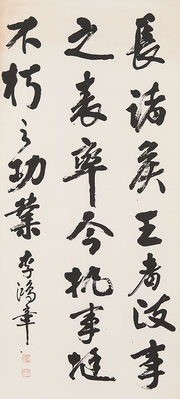 長諸侯王者政事
之表率今執事挺
不朽之功業
李鴻章